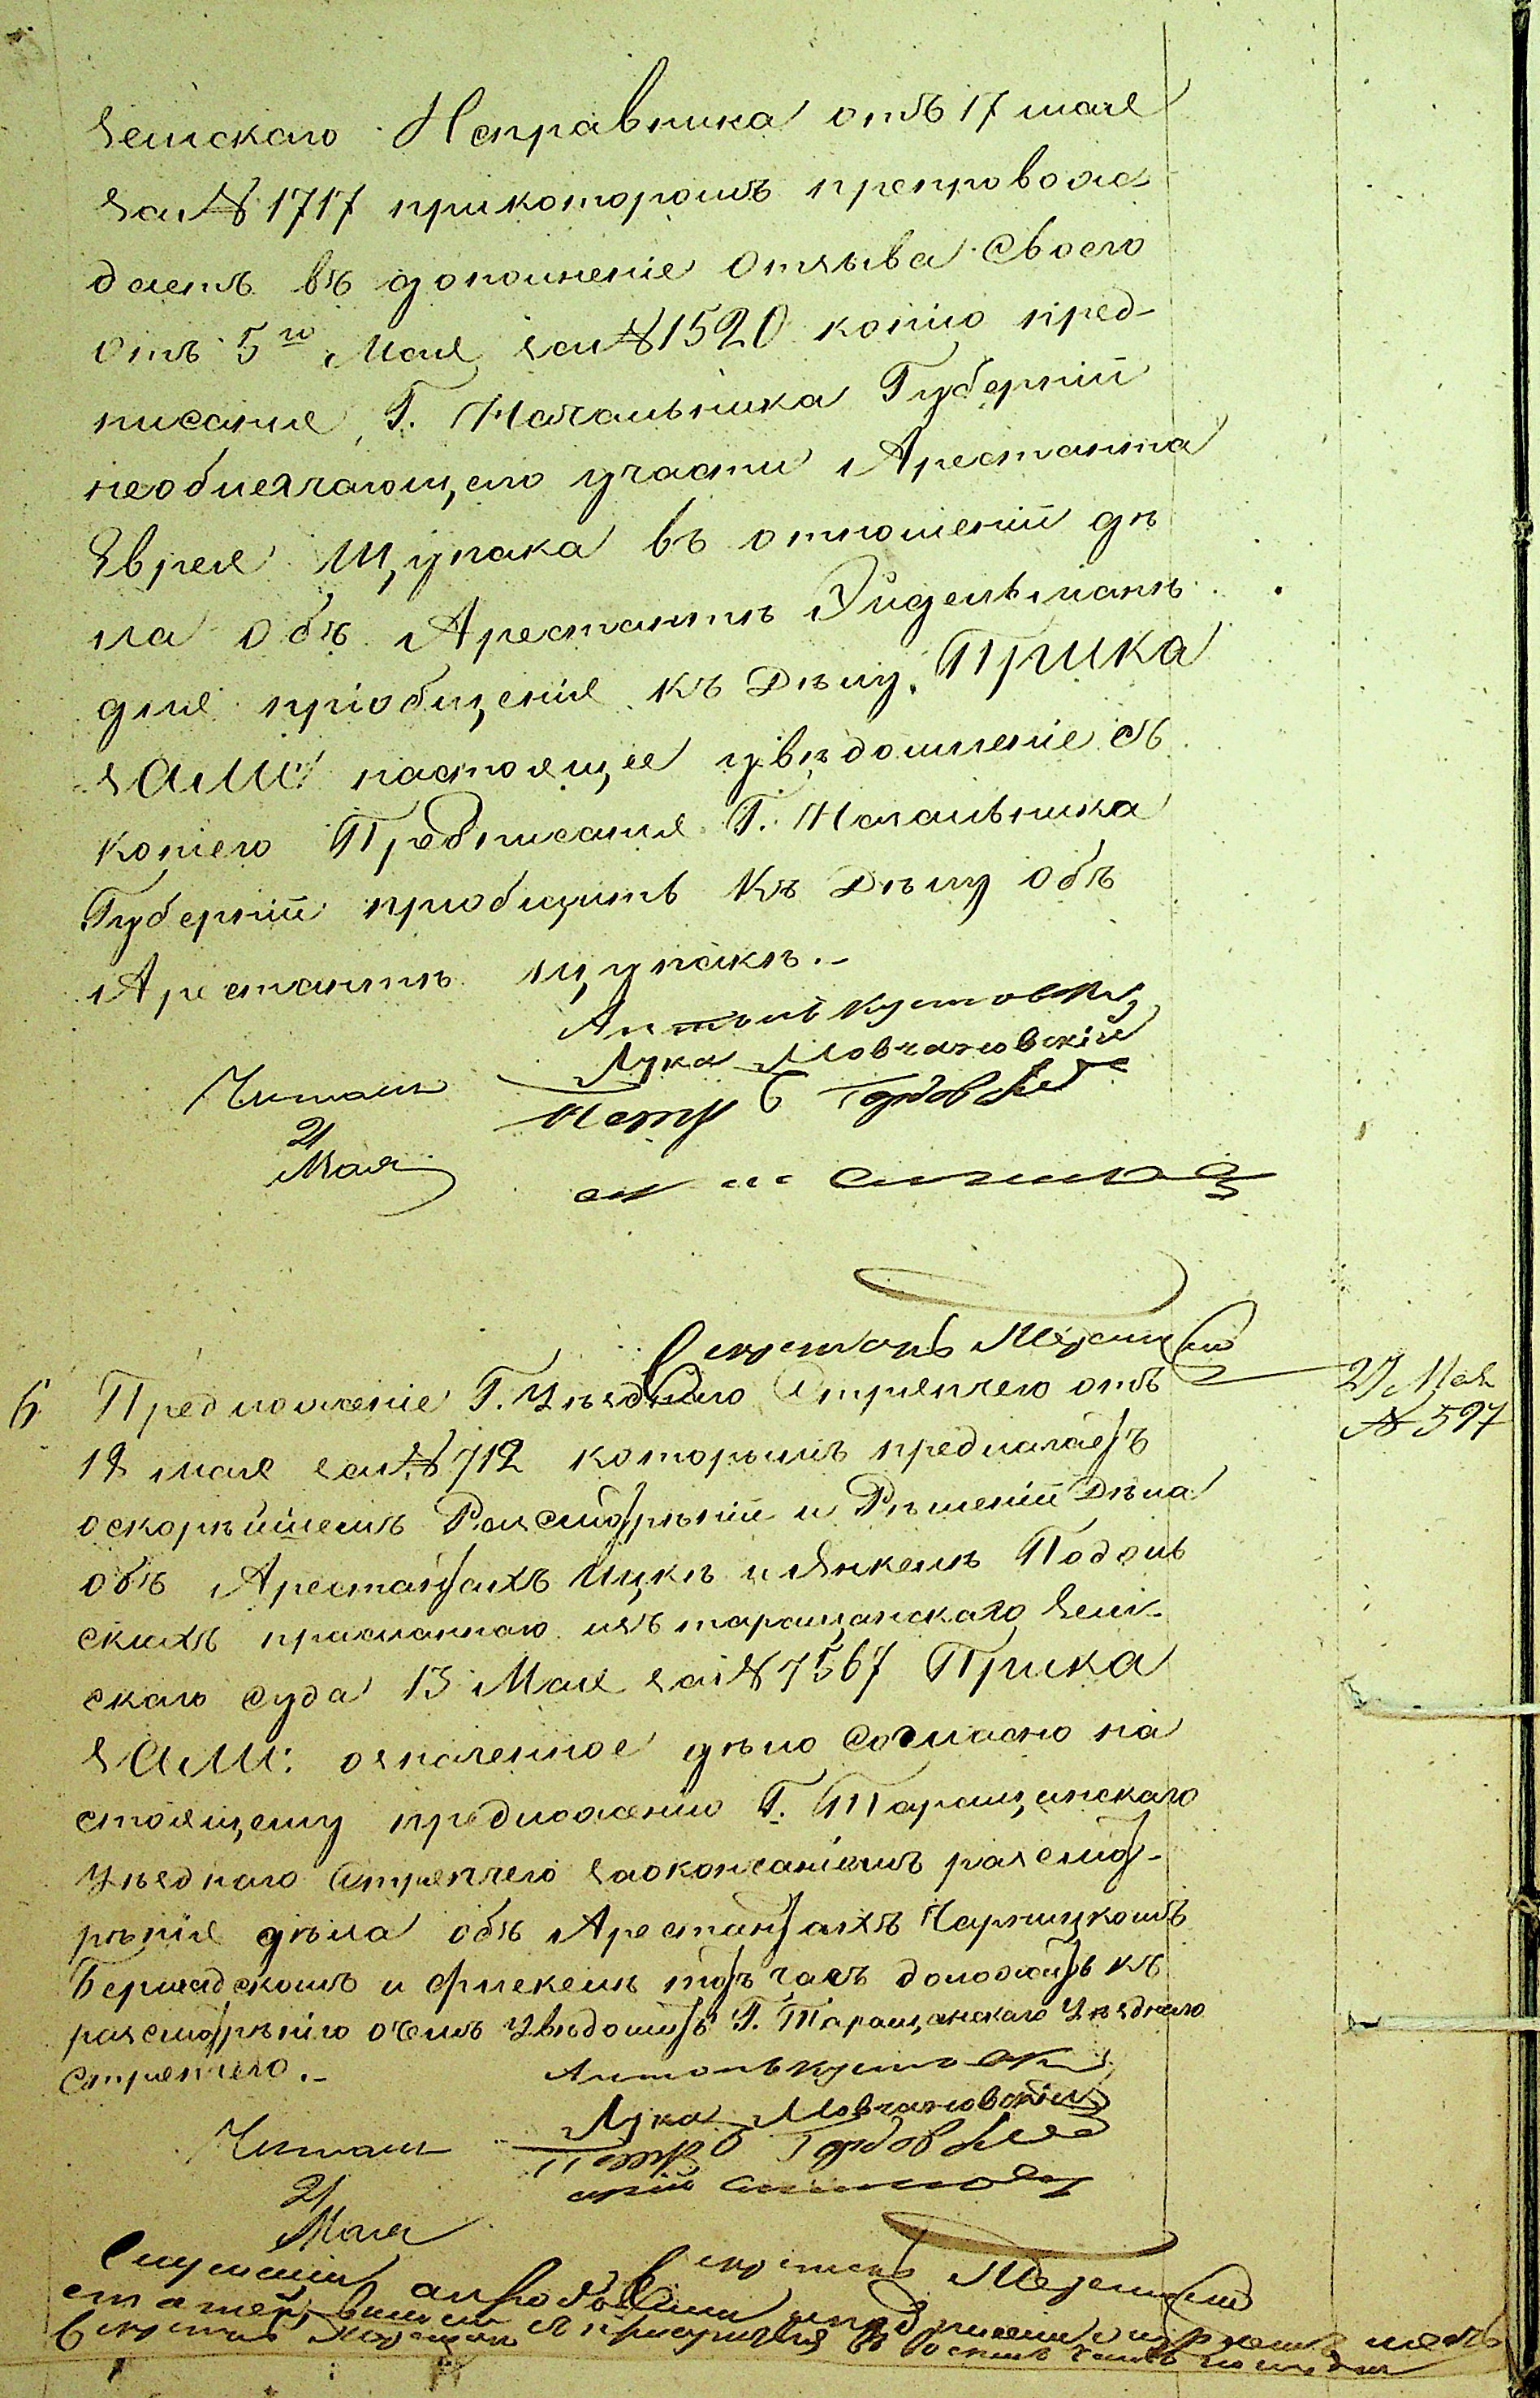 Земскаго Исправника отъ 17 мая
за № 1717 прикоторомъ препровож
даетъ въ дополненіе отзыва своего
отъ 5го Мая за № 1520 копію пред-
писанія Г. Начальника Губерніи
необлегчающего участи Арестанта
Еврея Щупака въ отношеніи дѣ
ла объ Арестантѣ Эйдельманѣ
для пріобщенія къ Дѣлу. Прика
зАЛИ: настоящее увѣдомленіе съ
копіею Предписанія Г. Начальника
Губерніи пріобщить къ Дѣлу объ
Арестантѣ Щупакѣ.-
Антонъ Кустовскій
Лука Мовчановскій
Читалъ
Петръ Гордовскій
21
Мая
Секретарь
6. Предложеніе Г. Уѣзднаго Стряпчего отъ
27 Мая
№ 597
18 мая за № 712 которымъ предлагаетъ
оскорѣйшемъ Разсмотрѣніи и Рѣшеніи Дѣла
объ Арестантахъ Ицкѣ и Янкелѣ Подоль
скихъ присланного изъ таращанскаго Зем-
скаго суда 13 Мая за № 7567 Прика
зАЛИ: означенное дѣло согласно на
стоящему предложенію Г. Таращанскаго
Уѣзднаго Стряпчего заокончаніемъ разсмот-
рѣнія дѣла объ Арестантахъ Чарнецкомъ
Бершадскомъ и Фискелѣ тотъ часъ доложить къ
разсмотрѣнію очемъ Увѣдомить Г. Таращанскаго Уѣзднаго
Стряпчего.-
Антонъ Кустовскій
Лука Мовчановскій
Читалъ
Петръ Гордовскій
21
Мая
Секретарь